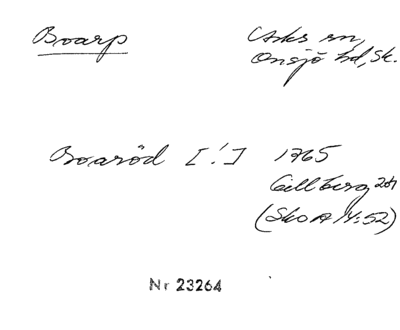 Boarp
Asks sn,
Onsjö hd, Sk.
Boaröd [!] 1765
Gillberg 201
(SkOA 14:52)
Nr 23264